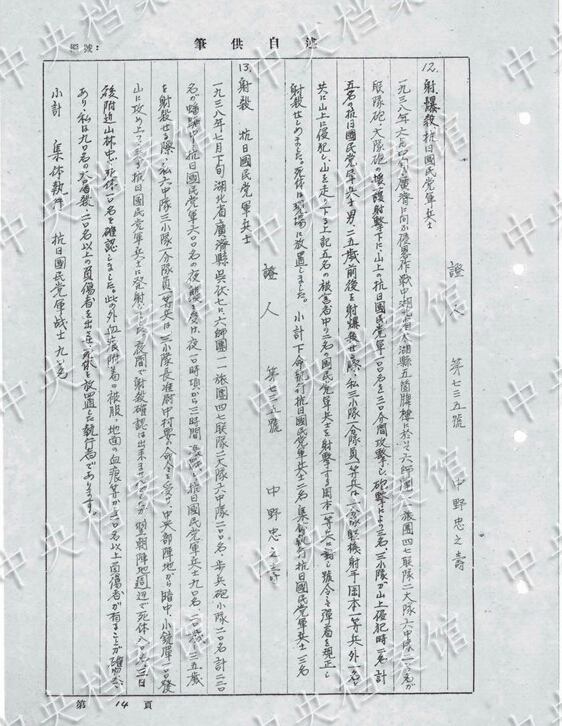 筆供白自
編號：
12. 射、爆殺抗日國民党軍兵士
證人 第七三五號 中野忠之壽
一九三八年六月
廣濟に向か侵畧作戦中湖北省太湖縣
に於て六師團一一旅團四七联隊二大隊六中隊一〇〇名が
联隊砲、大隊砲、援護射撃下に、山上の抗日國民党軍一〇〇名を三〇分間攻撃し、砲撃により三名、三小隊が山上侵犯時二名計
五名の抗日國民党軍兵士男二五歳前後を射爆殺せる際、私三小隊一分隊員一等兵は
軽機射手岡本一等兵外一名と
共に山上に侵犯し、山を走り下る上記五名の被害者中の二名の國民党軍兵士を射撃する岡本一等兵に対し號令で弾着を規正し
射殺せしめました。死体は現場に放置しました。 小計 下命執行抗日國民党軍兵士二名 集体執行抗日國民党軍兵士三名
證人 第七三五號 中野忠之壽
13. 射殺 抗日國民党軍兵士
一九三八年七月下旬湖北省廣濟縣
六師團一一旅團四七联隊二大隊六中隊一〇〇名、歩兵砲小隊一〇名計一一〇
名が
抗日國民党軍六〇〇名の夜襲を受け、夜一〇時頃から三時間
抗日國民党軍兵士九〇名、二〇歳〜三五歳
を射殺せる際、私六中隊三小隊一分隊員一等兵は三小隊長准尉中村
の命令を受け、中央部陣地から暗中、小銃弾一〇〇發
山に攻め上って来る抗日國民党軍兵士に発射しました。夜間で射殺確認は出来ませんが翌朝陣地周辺で死体八〇名、三日
後附近山林中で死体一〇名を確認しました。此の外血痕附着の被服、地面の血痕等から二〇名以上負傷者が有ることが確
あり、私は九〇名の
殺、二〇名以上の負傷者を出させ、死体を放置した執行者であります。
小計 集体執行 抗日國民党軍战士 九〇名
第 14 頁
中央档案馆